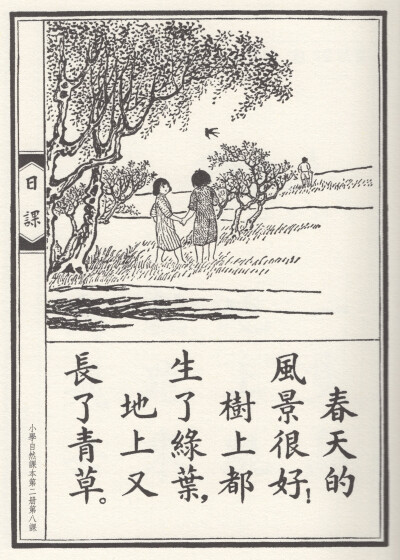 春天的
風景很好！
樹上都
生了綠葉，
地上又
長了青草。
日課
小學自然課本第二册第八課